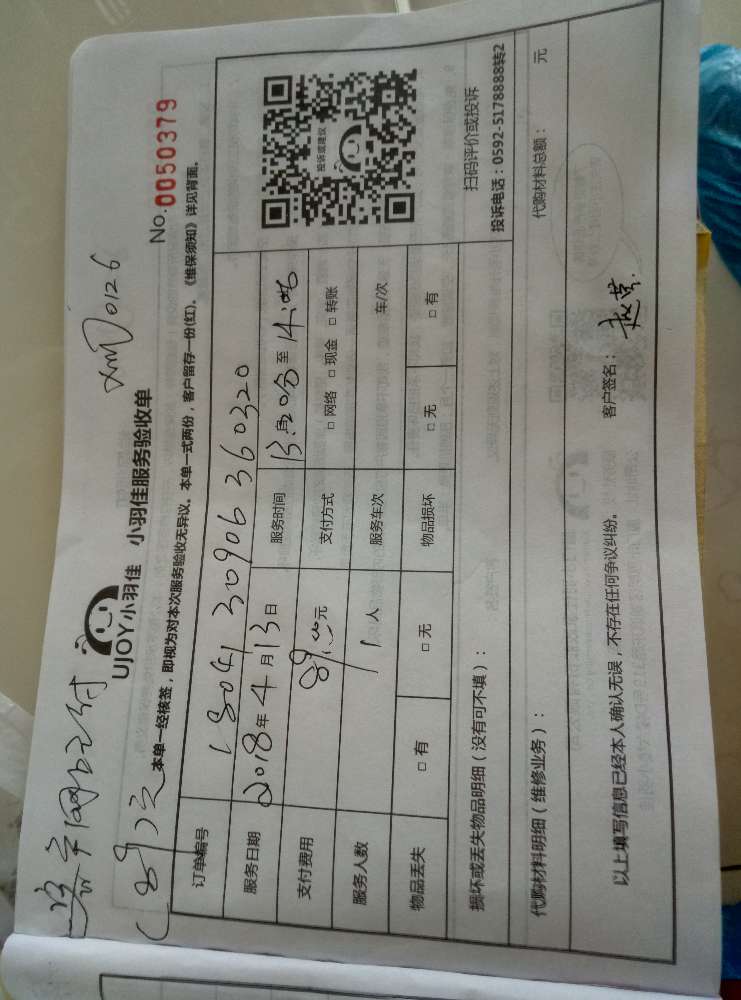 客户网上已付
(89元)
xm70126
UJOY小羽佳 小羽佳服务验收单
No. 0050379
本单一经核签，即视为对本次服务验收无异议。本单一式两份，客户留存一份(红)。《维保须知》详见背面。
订单编号 1804130906360320
服务日期 2018年4月13日 服务时间 至
支付费用 89元 支付方式 □ 网络 □ 现金 □ 转账
服务人数 1人 服务车次 车/次
物品丢失 □ 有 □ 无 物品损坏 □ 无 □ 有
投诉或建议
扫码评价或投诉
投诉电话：0592-5178888转2
损坏或丢失物品明细（没有可不填）：
代购材料明细（维修业务）： 代购材料总额： 元
以上填写信息已经本人确认无误，不存在任何争议纠纷。 客户签名：